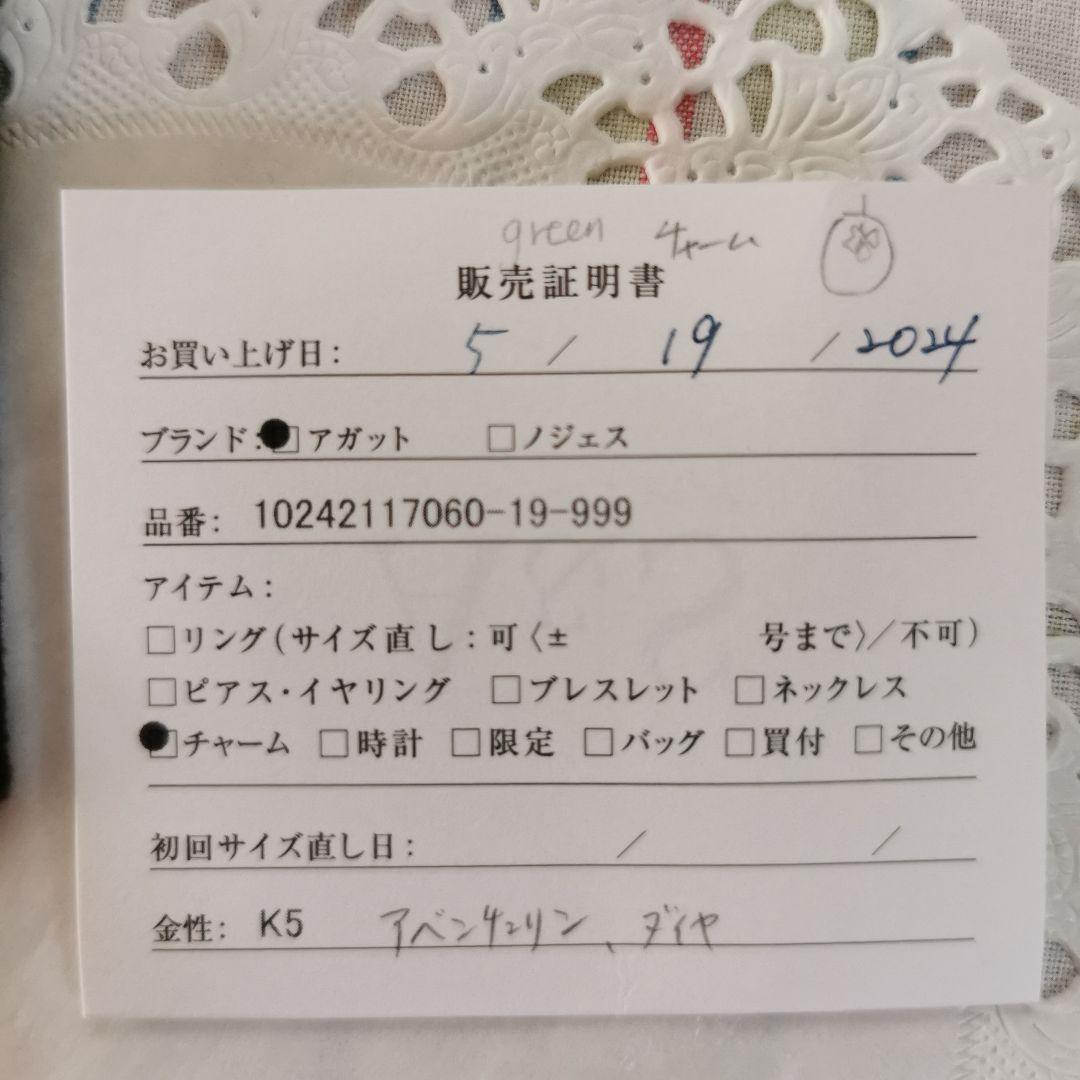 green チャーム
販売証明書
お買い上げ日: 5 / 19 / 2024
ブランド: □アガット □ノジェス
品番: 10242117060-19-999
アイテム:
□リング(サイズ直し:可〈± 号まで〉/不可)
□ピアス・イヤリング □ブレスレット □ネックレス
□チャーム □時計 □限定 □バッグ □買付 □その他
初回サイズ直し日: / /
金性: K5 アベンチュリン、ダイヤ